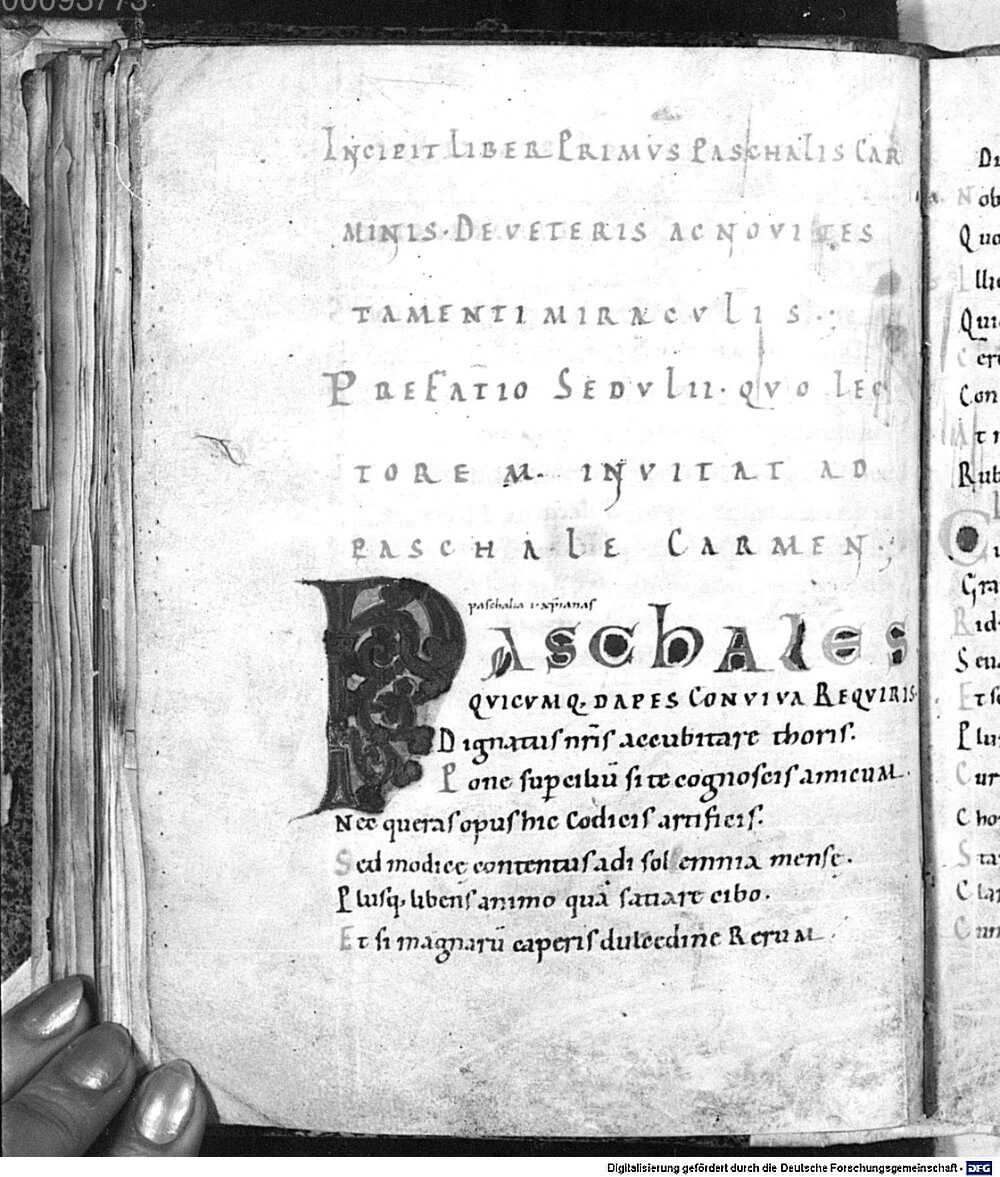 00093773
INCIPIT LIBER PRIMVS PASCHALIS CAR
MINIS · DE VETERIS AC NOVI TES
TAMENTI MIRACVLIS ·
PREFATIO SEDVLII · QVO LEC
TOREM · INVITAT AD
PASCHALE CARMEN ·
paschalia
PASCHALES
QVICVMQ; DAPES CONVIVA REQVIRIS·
Dignatus nr̄is accubitare thoris.
Pone supciliū si te cognoscis amicum.
Nec queras opus hic Codicis artificis.
Sed modicę contentus adi sollemnia mensę.
Plusq; libens animo quā satiare cibo.
Et si magnarū caperis dulcedine Rerum.
Nob
Quo
Qui
Con
Rub
Gra
Rid
Et
Plu
Cur
Cho
Sta
Clar
Cum
Digitalisierung gefördert durch die Deutsche Forschungsgemeinschaft - DFG